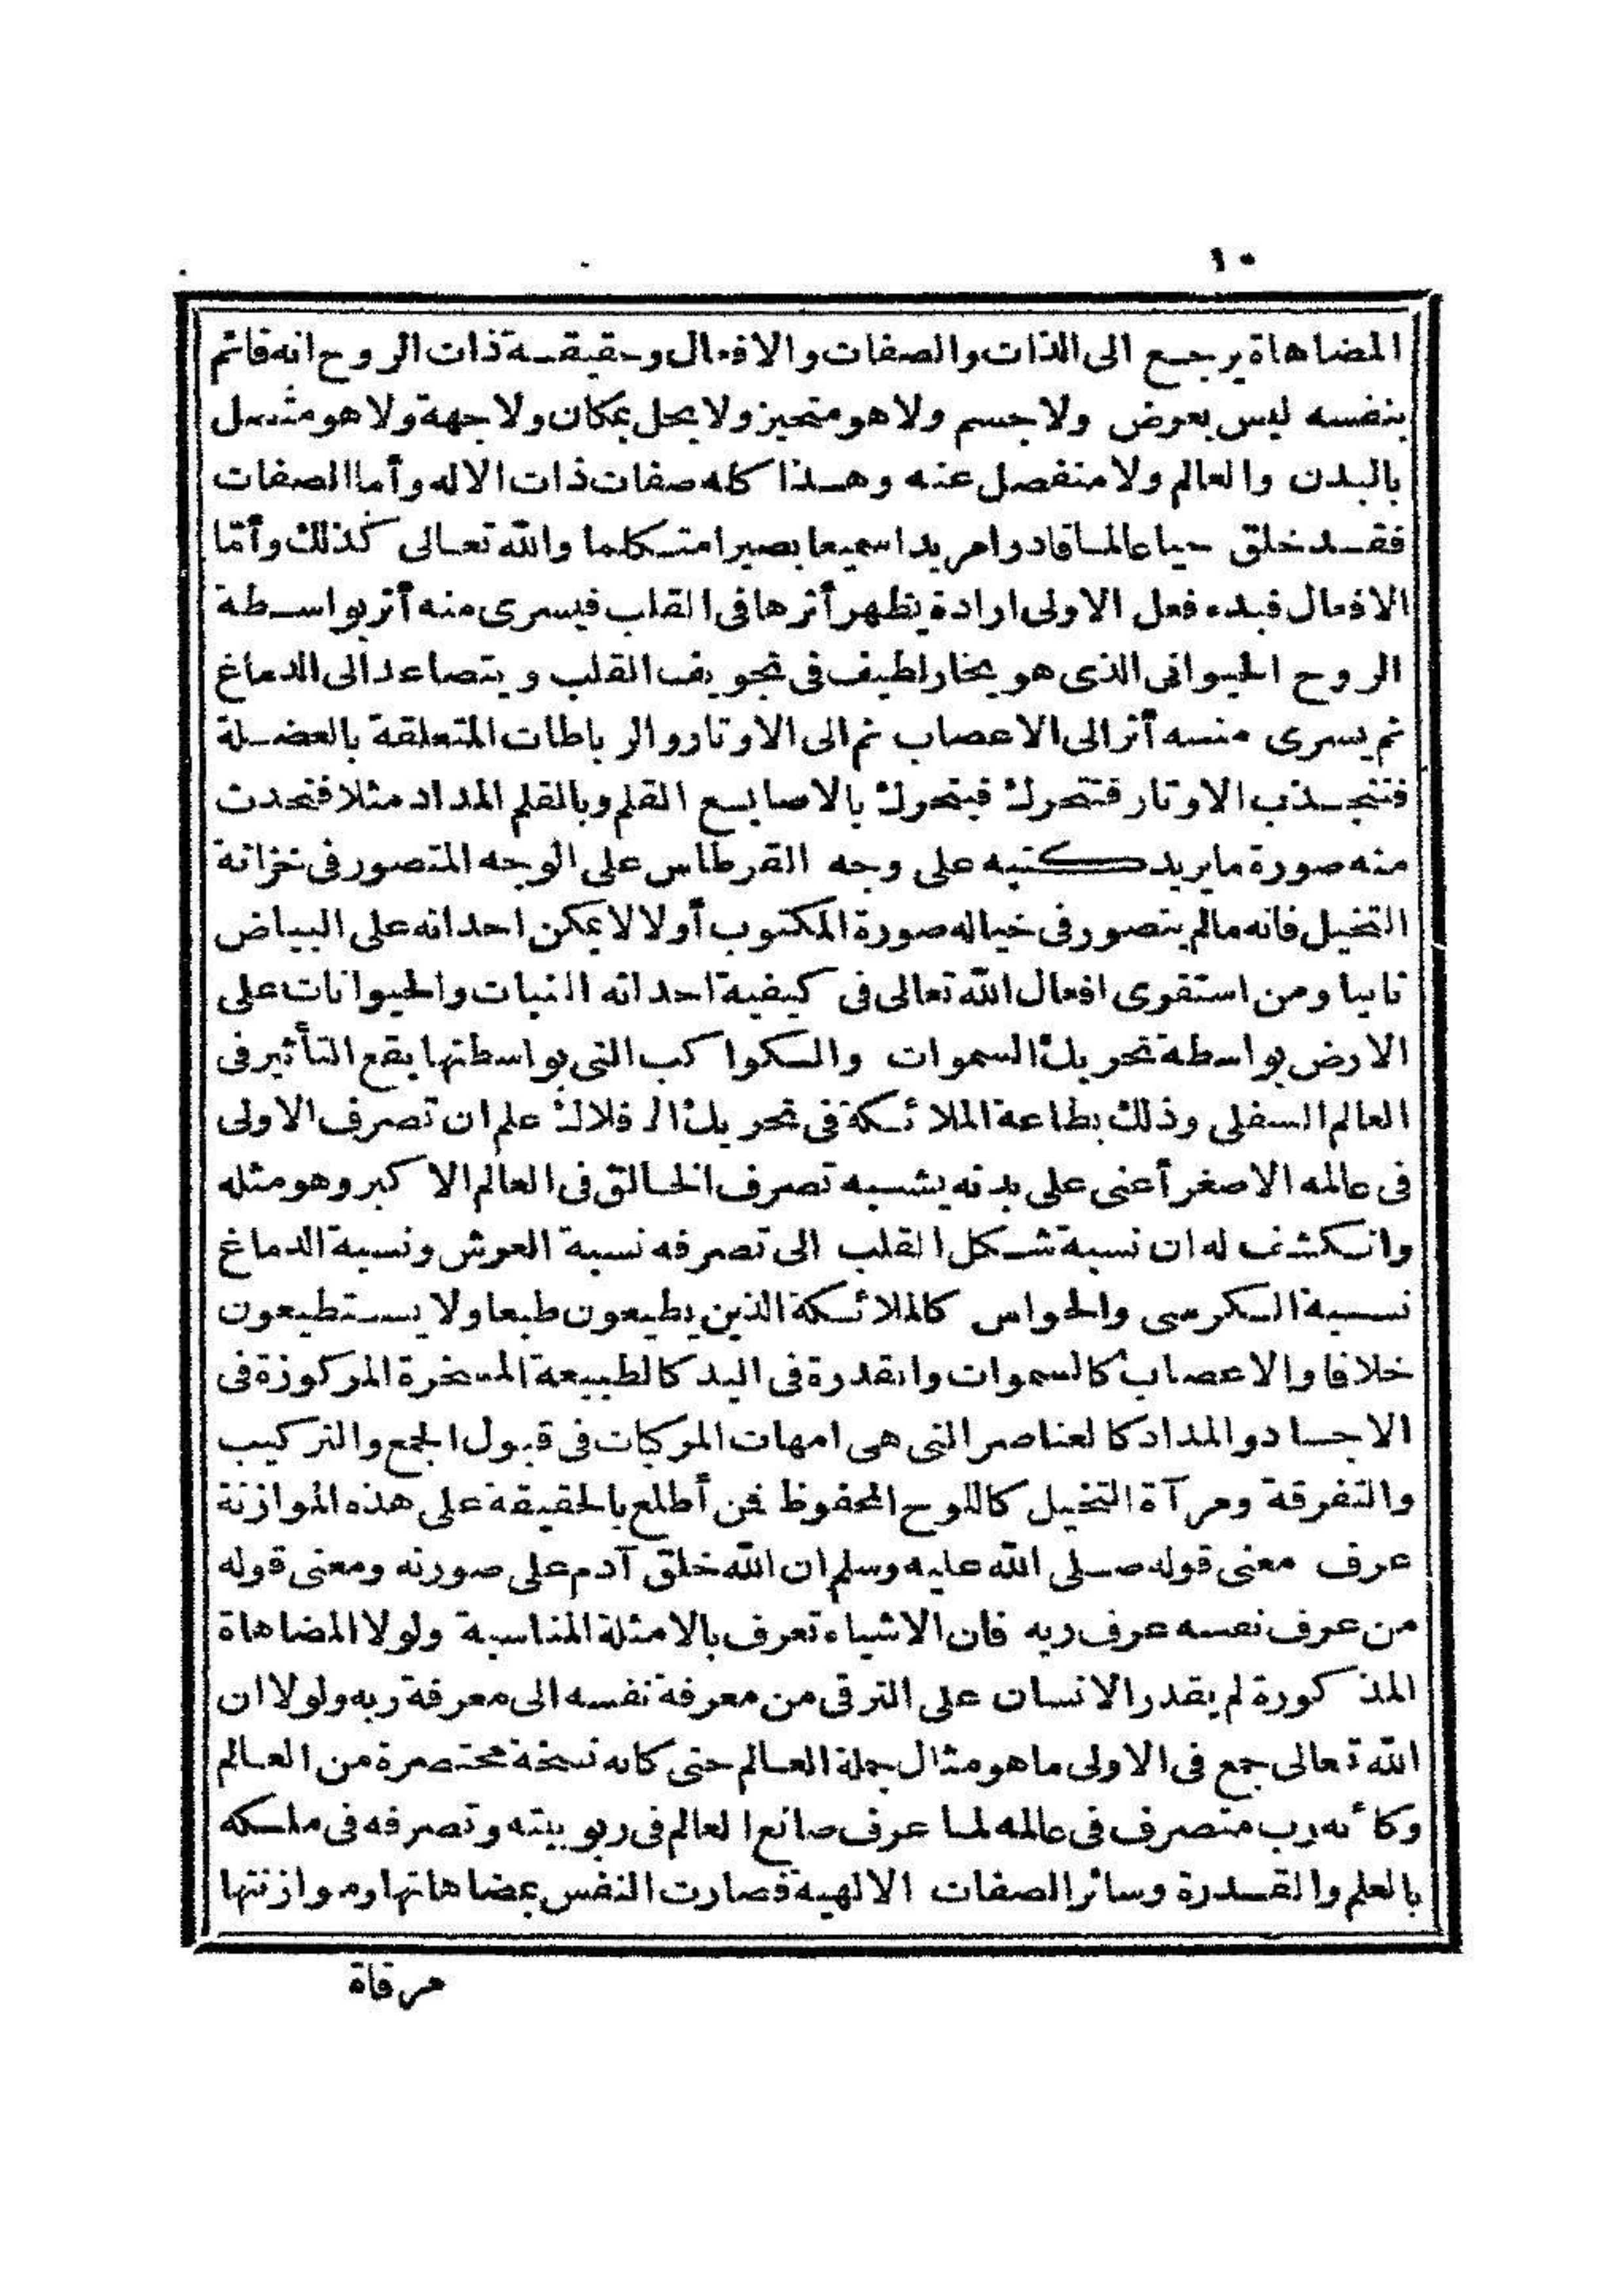 ١٠
المضاهاة يرجع الى الذات والصفات والافعال وحقيقة ذات الروح انه قائم
بنفسه ليس بعرض ولا جسم ولا هو متحيز ولا يحل بمكان ولا جهة ولا هو متصل
بالبدن والعالم ولا منفصل عنه وهذا كله صفات ذات الاله وأما الصفات
فقد خلق حيا عالما قادرا مريدا سميعا بصيرا متكلما والله تعالى كذلك وأما
الافعال فبدء فعل الاولى ارادة يظهر أثرها فى القلب فيسرى منه أثر بواسطة
الروح الحيوانى الذى هو بخار لطيف فى تجويف القلب ويتصاعد الى الدماغ
ثم يسرى منه أثر الى الاعصاب ثم الى الاوتار والرباطات المتعلقة بالعضلة
فتنجذب الاوتار فتتحرك فيتحرك بالاصابع القلم وبالقلم المداد مثلا فتحدث
منه صورة ما يريد كتبه على وجه القرطاس على الوجه المتصور فى خزانة
التخيل فانه مالم يتصور فى خياله صورة المكتوب أولا لا يمكن احداثه على البياض
ثانيا ومن استقرى افعال الله تعالى فى كيفية احداثه النبات والحيوانات على
الارض بواسطة تحريك السموات والكواكب التى بواسطتها يقع التأثير فى
العالم السفلى وذلك بطاعة الملائكة فى تحريك الافلاك علم ان تصرف الاولى
فى عالمه الاصغر أعنى على بدنه يشبه تصرف الخالق فى العالم الاكبر وهو مثله
وانكشف له ان نسبة شكل القلب الى تصرفه نسبة العرش ونسبة الدماغ
نسبة الكرسى والحواس كالملائكة الذين يطيعون طبعا ولا يستطيعون
خلافا والاعصاب كالسموات والقدرة فى اليد كالطبيعة المسخرة المركوزة فى
الاجساد والمداد كالعناصر التى هى امهات المركبات فى قبول الجمع والتركيب
والتفرقة ومرآة التخيل كاللوح المحفوظ فمن أطلع بالحقيقة على هذه الموازنة
عرف معنى قوله صلى الله عليه وسلم ان الله خلق آدم على صورته ومعنى قوله
من عرف نفسه عرف ربه فان الاشياء تعرف بالامثلة المناسبة ولولا المضاهاة
المذكورة لم يقدر الانسان على الترقى من معرفة نفسه الى معرفة ربه ولولا ان
الله تعالى جمع فى الاولى ما هو مثال جملة العالم حتى كانه نسخة مختصرة من العالم
وكأنه رب متصرف فى عالمه لما عرف صانع العالم فى ربوبيته وتصرفه فى ملكه
بالعلم والقدرة وسائر الصفات الالهية فصارت النفس بمضاهاتها وموازنتها
مرقاة